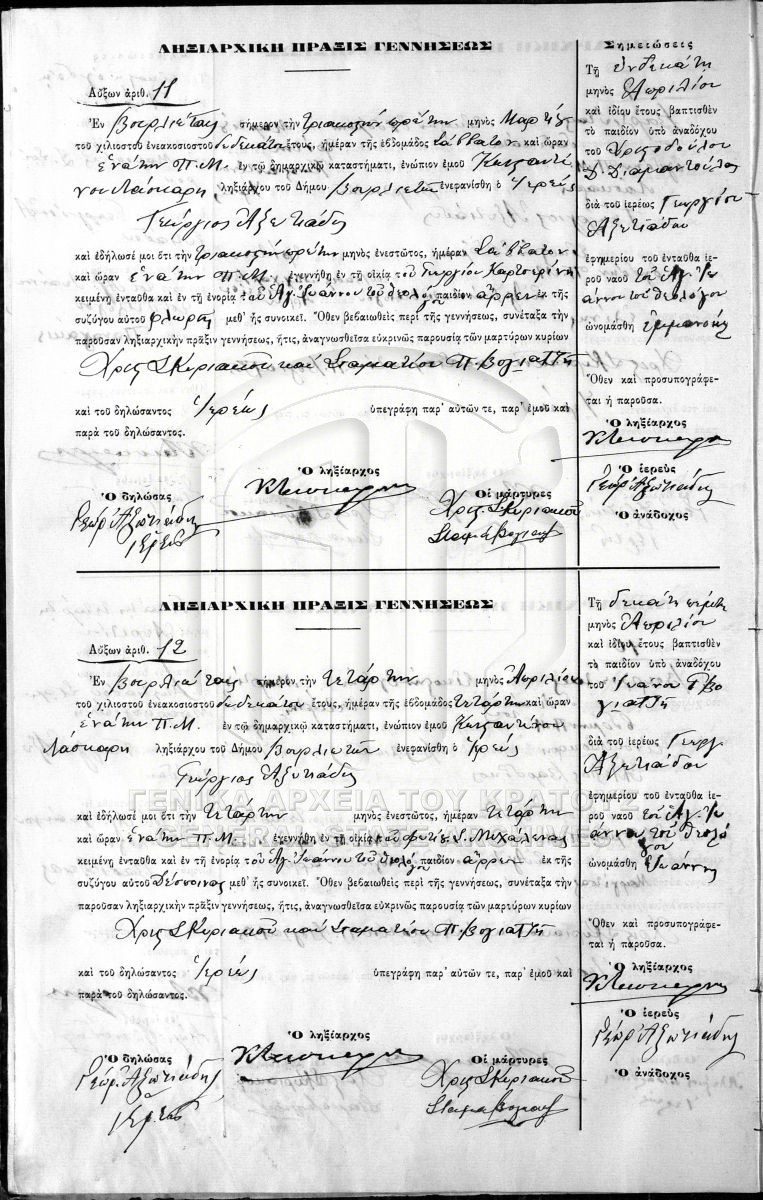 ΛΗΞΙΑΡΧΙΚΗ ΠΡΑΞΙΣ ΓΕΝΝΗΣΕΩΣ
Αὔξων ἀριθ. 11
Ἐν Βουρλιώταις σήμερον τὴν τριακοστὴν πρώτην μηνὸς Μαρτίου
τοῦ χιλιοστοῦ ἐνεακοσιοστοῦ δωδεκάτου ἔτους, ἡμέραν τῆς ἑβδομάδος Σάββατον καὶ ὥραν
ἐνάτην Π.Μ. ἐν τῷ δημαρχικῷ καταστήματι, ἐνώπιον ἐμοῦ Κωνσταντί
νου Λάσκαρη ληξιάρχου τοῦ Δήμου Βουρλιωτῶν ἐνεφανίσθη ὁ Ἱερεὺς
Γεώργιος Ἀξωτιάδης
καὶ ἐδήλωσέ μοι ὅτι τὴν τριακοστὴν πρώτην μηνὸς ἐνεστῶτος, ἡμέραν Σάββατον
καὶ ὥραν ἐνάτην Π.Μ. ἐγεννήθη ἐν τῇ οἰκίᾳ τοῦ Γεωργίου
κειμένῃ ἐνταῦθα καὶ ἐν τῇ ἐνορίᾳ τοῦ Ἁγ. Ἰωάννου τοῦ Θεολόγου παιδίον ἄρρεν ἐκ τῆς
συζύγου αὐτοῦ Φλωρῆς μεθ' ἧς συνοικεῖ. Ὅθεν βεβαιωθεὶς περὶ τῆς γεννήσεως, συνέταξα τὴν
παροῦσαν ληξιαρχικὴν πρᾶξιν γεννήσεως, ἥτις, ἀναγνωσθεῖσα εὐκρινῶς παρουσίᾳ τῶν μαρτύρων κυρίων
Χριστ. Σ. Κυριακοῦ καὶ Σταματίου Π. Βογιατζῆ
καὶ τοῦ δηλώσαντος Ἱερέως ὑπεγράφη παρ' αὐτῶν τε, παρ' ἐμοῦ καὶ
παρὰ τοῦ δηλώσαντος.
Ὁ ληξίαρχος
Ὁ δηλώσας
Οἱ μάρτυρες
Γεώρ. Ἀξωτιάδης
Ἱερεὺς
Χριστ. Σ. Κυριακοῦ
Σημειώσεις
Τῇ ἑνδεκάτῃ
μηνὸς Ἀπριλίου
καὶ ἰδίου ἔτους βαπτισθὲν
τὸ παιδίον ὑπὸ ἀναδόχου
τοῦ Χριστοδούλου
διὰ τοῦ ἱερέως Γεωργίου
Ἀξωτιάδου
ἐφημερίου τοῦ ἐνταῦθα ἱε-
ροῦ ναοῦ τοῦ Ἁγ. Ἰω
άννου τοῦ Θεολόγου
ὠνομάσθη Ἐμμανουὴλ
Ὅθεν καὶ προσυπογράφε-
ται ἡ παροῦσα.
Ὁ ληξίαρχος
Ὁ ἱερεὺς
Γεώρ. Ἀξωτιάδης
Ὁ ἀνάδοχος
ΛΗΞΙΑΡΧΙΚΗ ΠΡΑΞΙΣ ΓΕΝΝΗΣΕΩΣ
Αὔξων ἀριθ. 12
Ἐν Βουρλιώταις σήμερον τὴν τετάρτην μηνὸς Ἀπριλίου
τοῦ χιλιοστοῦ ἐνεακοσιοστοῦ δωδεκάτου ἔτους, ἡμέραν τῆς ἑβδομάδος τετάρτην καὶ ὥραν
ἐνάτην Π.Μ. ἐν τῷ δημαρχικῷ καταστήματι, ἐνώπιον ἐμοῦ Κωνσταντίνου
Λάσκαρη ληξιάρχου τοῦ Δήμου Βουρλιωτῶν ἐνεφανίσθη ὁ Ἱερεὺς
Γεώργιος Ἀξωτιάδης
ΓΕΝΙΚΑ ΑΡΧΕΙΑ ΤΟΥ ΚΡΑΤΟΥΣ
καὶ ἐδήλωσέ μοι ὅτι τὴν τετάρτην μηνὸς ἐνεστῶτος, ἡμέραν τετάρτην
καὶ ὥραν ἐνάτην Π.Μ. ἐγεννήθη ἐν τῇ οἰκίᾳ τοῦ
κειμένῃ ἐνταῦθα καὶ ἐν τῇ ἐνορίᾳ τοῦ Ἁγ. Ἰωάννου τοῦ Θεολόγου παιδίον ἄρρεν ἐκ τῆς
συζύγου αὐτοῦ Δέσποινας μεθ' ἧς συνοικεῖ. Ὅθεν βεβαιωθεὶς περὶ τῆς γεννήσεως, συνέταξα τὴν
παροῦσαν ληξιαρχικὴν πρᾶξιν γεννήσεως, ἥτις, ἀναγνωσθεῖσα εὐκρινῶς παρουσίᾳ τῶν μαρτύρων κυρίων
Χριστ. Σ. Κυριακοῦ καὶ Σταματίου Π. Βογιατζῆ
καὶ τοῦ δηλώσαντος Ἱερέως ὑπεγράφη παρ' αὐτῶν τε, παρ' ἐμοῦ καὶ
παρὰ τοῦ δηλώσαντος.
Ὁ ληξίαρχος
Ὁ δηλώσας
Οἱ μάρτυρες
Γεώρ. Ἀξωτιάδης
Ἱερεὺς
Χριστ. Σ. Κυριακοῦ
Τῇ δεκάτῃ πέμπτῃ
μηνὸς Ἀπριλίου
καὶ ἰδίου ἔτους βαπτισθὲν
τὸ παιδίον ὑπὸ ἀναδόχου
τοῦ Ἰωάνου Βο
γιατζῆ
διὰ τοῦ ἱερέως Γεωργ.
Ἀξωτιάδου
ἐφημερίου τοῦ ἐνταῦθα ἱε-
ροῦ ναοῦ τοῦ Ἁγ. Ἰω
άννου τοῦ Θεολό
γου
ὠνομάσθη Ἰωάννης
Ὅθεν καὶ προσυπογράφε-
ται ἡ παροῦσα.
Ὁ ληξίαρχος
Ὁ ἱερεὺς
Γεώρ. Ἀξωτιάδης
Ὁ ἀνάδοχος